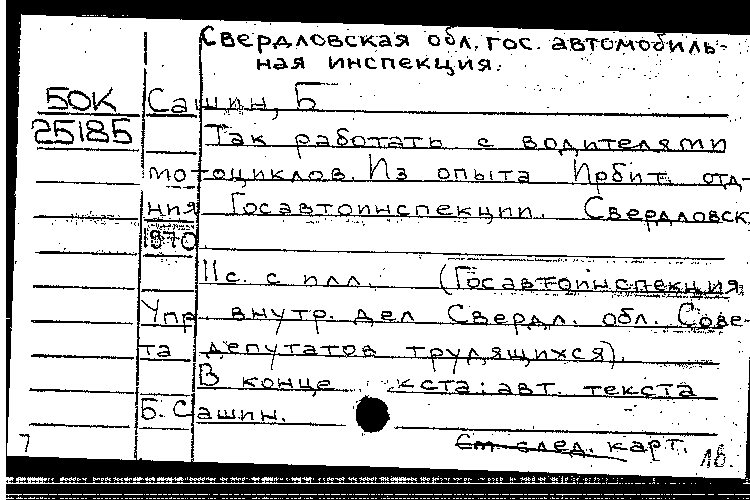 Свердловская обл. гос. автомобиль-
ная инспекция.
БОК Сашин, Б
25185 Так работать с водителями
мотоциклов. Из опыта Ирбит. отд-
ния Госавтоинспекции. Свердловск,
1970
11с. с илл. (Госавтоинспекция
Упр. внутр. дел Свердл. обл. Сове-
та депутатов трудящихся).
В конце кста: авт. текста
Б. Сашин.
См след. карт.
7